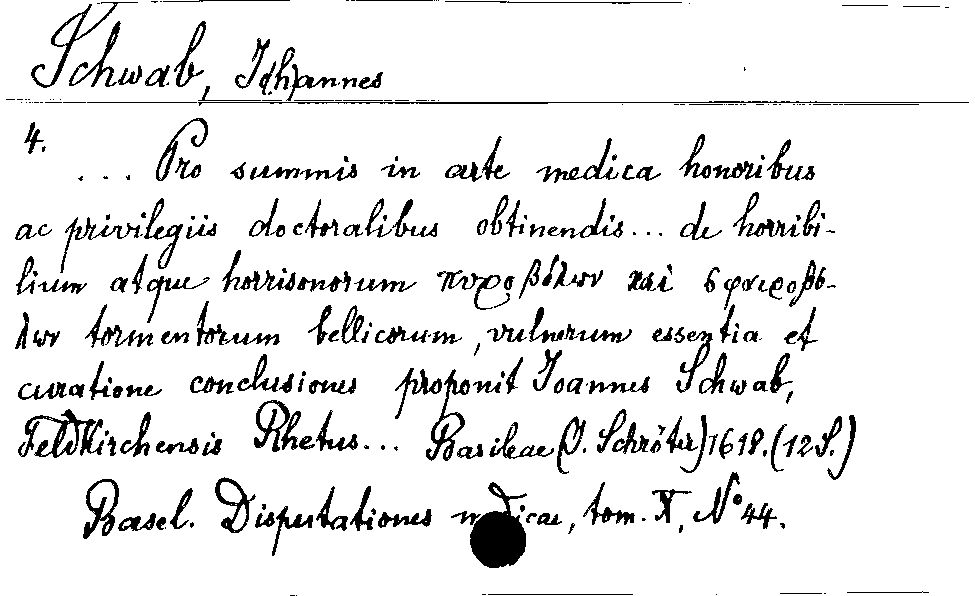 Schwab, Jo(h)annes
4.
... Pro summis in arte medica honoribus
ac privilegiis doctoralibus obtinendis... de horribi-
lium atque horrisonorum πυροβόλων καὶ σφαιροβό-
λων tormentorum bellicorum, vulnerum essentia et
curatione conclusiones proponit Joannes Schwab,
Feldkirchensis Rhetus... Basileae (J. Schröter) 1618. (12 S.)
Basel. Disputationes medicae, tom. X, N° 44.